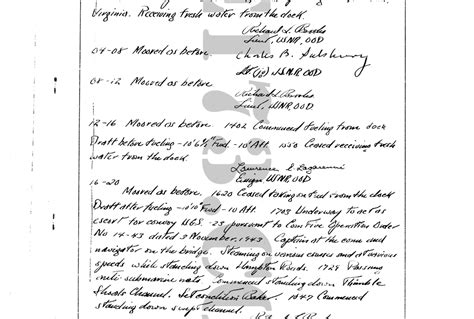 Virginia. Receiving fresh water from the dock.
Richard L.
Lieut, USNR, OOD
04-08 Moored as before.
Charles B.
Lt (jg) USNR OOD
08-12 Moored as before
Richard L.
Lieut, USNR, OOD
12-16 Moored as before. 1402 Commenced fueling from dock
Draft before fueling - Fwd - Aft. 1550 Ceased receiving fresh
water from the dock
Lawrence
Ensign USNR, OOD
16-20
Moored as before. 1620 Ceased taking on fuel from the dock
Draft after fueling - Fwd - Aft. 1703 Underway to act as
escort for convoy UGS-23 pursuant to ComFive Operation Order
No 14-43 dated 3 November, 1943 Captain at the conn and
navigator on the bridge. Steaming on various courses and at various
speeds while standing down Hampton Roads. 1725 Passing
submarine nets. Commenced standing down Thimble
Shoals Channel. Set condition Baker. 1847 Commenced
standing down swept channel.